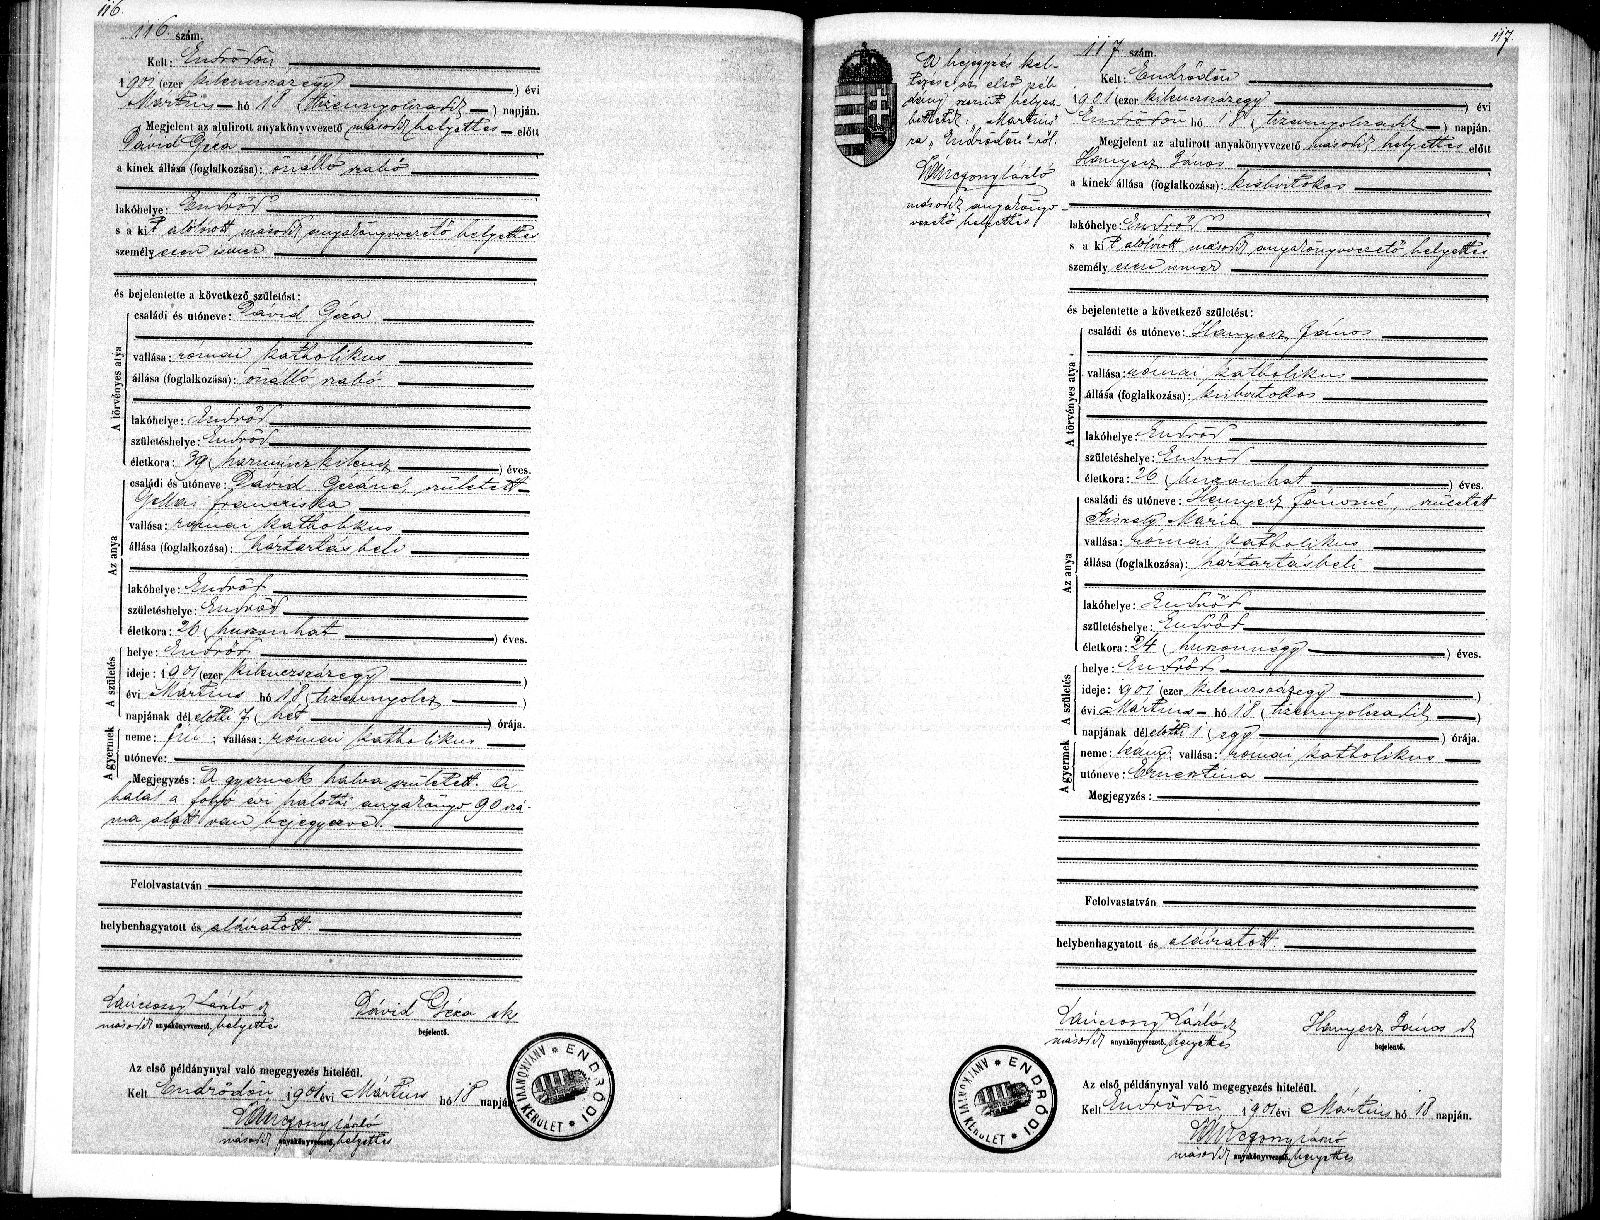 116.
116. szám.
Kelt: Endrődön
1901 (ezer kilencszázegy ) évi
Mártius hó 18 (tizennyolcadik ) napján.
Megjelent az alulirott anyakönyvvezető második helyettes előtt
Dávid Géza
a kinek állása (foglalkozása): önálló szabó
lakóhelye: Endrőd
s a kit alólirott második anyakönyvvezető helyettes
személyesen ismer
és bejelentette a következő születést:
A törvényes atya
családi és utóneve: Dávid Géza
vallása: római katholikus
állása (foglalkozása): önálló szabó
lakóhelye: Endrőd
születéshelye: Endrőd
életkora: 39 (harminczkilencz ) éves.
Az anya
családi és utóneve: Dávid Gézáné, született
Gellai Franciska
vallása: római katholikus
állása (foglalkozása): háztartásbeli
lakóhelye: Endrőd
születéshelye: Endrőd
életkora: 26 (huszonhat ) éves.
A születés
helye: Endrőd
ideje: 1901 (ezer kilencszázegy )
évi Mártius hó 18 (tizennyolcz )
napjának dél előtti 7 (hét ) órája.
A gyermek
neme: fiu; vallása: római katholikus
utóneve:
Megjegyzés: A gyermek halva született. A
halál a folyó évi halotti anyakönyv 90 szá-
ma alatt van bejegyezve.
Felolvastatván
helybenhagyatott és aláiratott.
Lánczony László sk
második anyakönyvvezető helyettes
Dávid Géza sk
bejelentő.
Az első példánynyal való megegyezés hiteléül.
Kelt Endrődön, 1901 évi Mártius hó 18 napján
Lánczony László
második anyakönyvvezető helyettes
ENDRŐDI ANYAKÖNYVI KERÜLET
117.
117 szám.
A bejegyzés kel-
tezése az első pél-
dány szerint helyes-
bittetik "Mártius"
ra "Endrődön"-ről.
Lánczony László
második anyakönyv-
vezető helyettes
Kelt: Endrődön
1901 (ezer kilencszázegy ) évi
Endrődön hó 18 (tizennyolcadik ) napján.
Megjelent az alulirott anyakönyvvezető második helyettes előtt
Hanyecz János
a kinek állása (foglalkozása): kisbirtokos
lakóhelye: Endrőd
s a kit alólirott második anyakönyvvezető helyettes
személyesen ismer
és bejelentette a következő születést:
A törvényes atya
családi és utóneve: Hanyecz János
vallása: római katholikus
állása (foglalkozása): kisbirtokos
lakóhelye: Endrőd
születéshelye: Endrőd
életkora: 26 (huszonhat ) éves.
Az anya
családi és utóneve: Hanyecz Jánosné, született
Kiszely Mária
vallása: római katholikus
állása (foglalkozása): háztartásbeli
lakóhelye: Endrőd
születéshelye: Endrőd
életkora: 24 (huszonnégy ) éves.
A születés
helye: Endrőd
ideje: 1901 (ezer kilencszázegy )
évi Mártius hó 18 (tizennyolcadik )
napjának dél előtti 1 (egy ) órája.
A gyermek
neme: leány; vallása: római katholikus
utóneve: Ernesztina
Megjegyzés:
Felolvastatván
helybenhagyatott és aláiratott.
Lánczony László sk
második anyakönyvvezető helyettes
Hanyecz János sk
bejelentő.
Az első példánynyal való megegyezés hiteléül.
Kelt Endrődön, 1901 évi Mártius hó 18 napján.
Lánczony László
második anyakönyvvezető helyettes
ENDRŐDI ANYAKÖNYVI KERÜLET